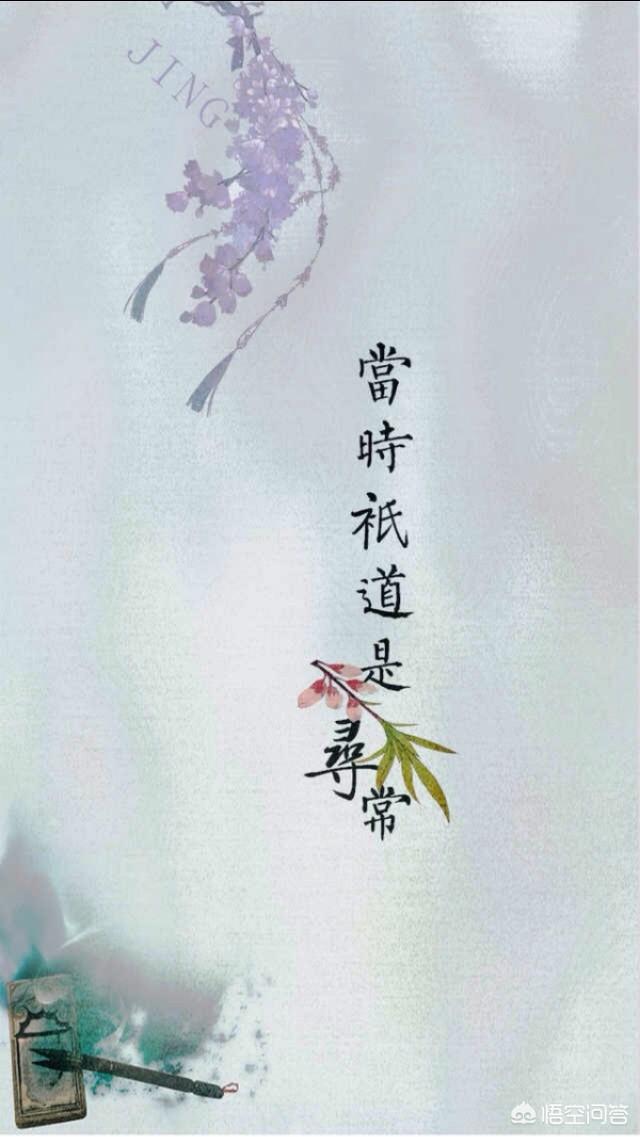 JING
當時祇道是尋常
悟空问答